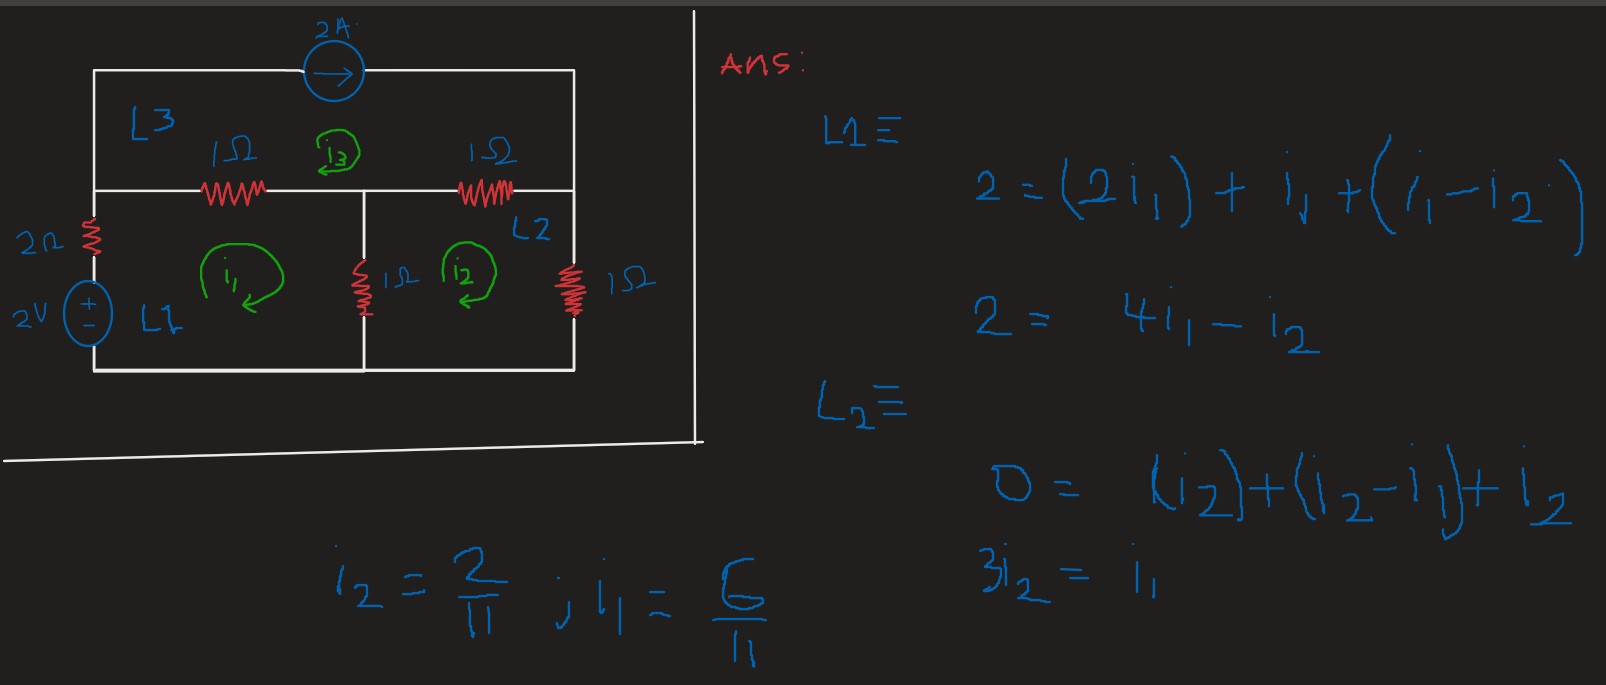 2A
L3
1Ω
i3
1Ω
2Ω
L2
i1
1Ω
i2
1Ω
2V
+
-
L1
Ans:
L1 ≡
2 = (2i1) + i1 + (i1 - i2)
2 = 4i1 - i2
L2 ≡
0 = (i2) + (i2 - i1) + i2
3i2 = i1
i2 = 2/11 ; i1 = 6/11